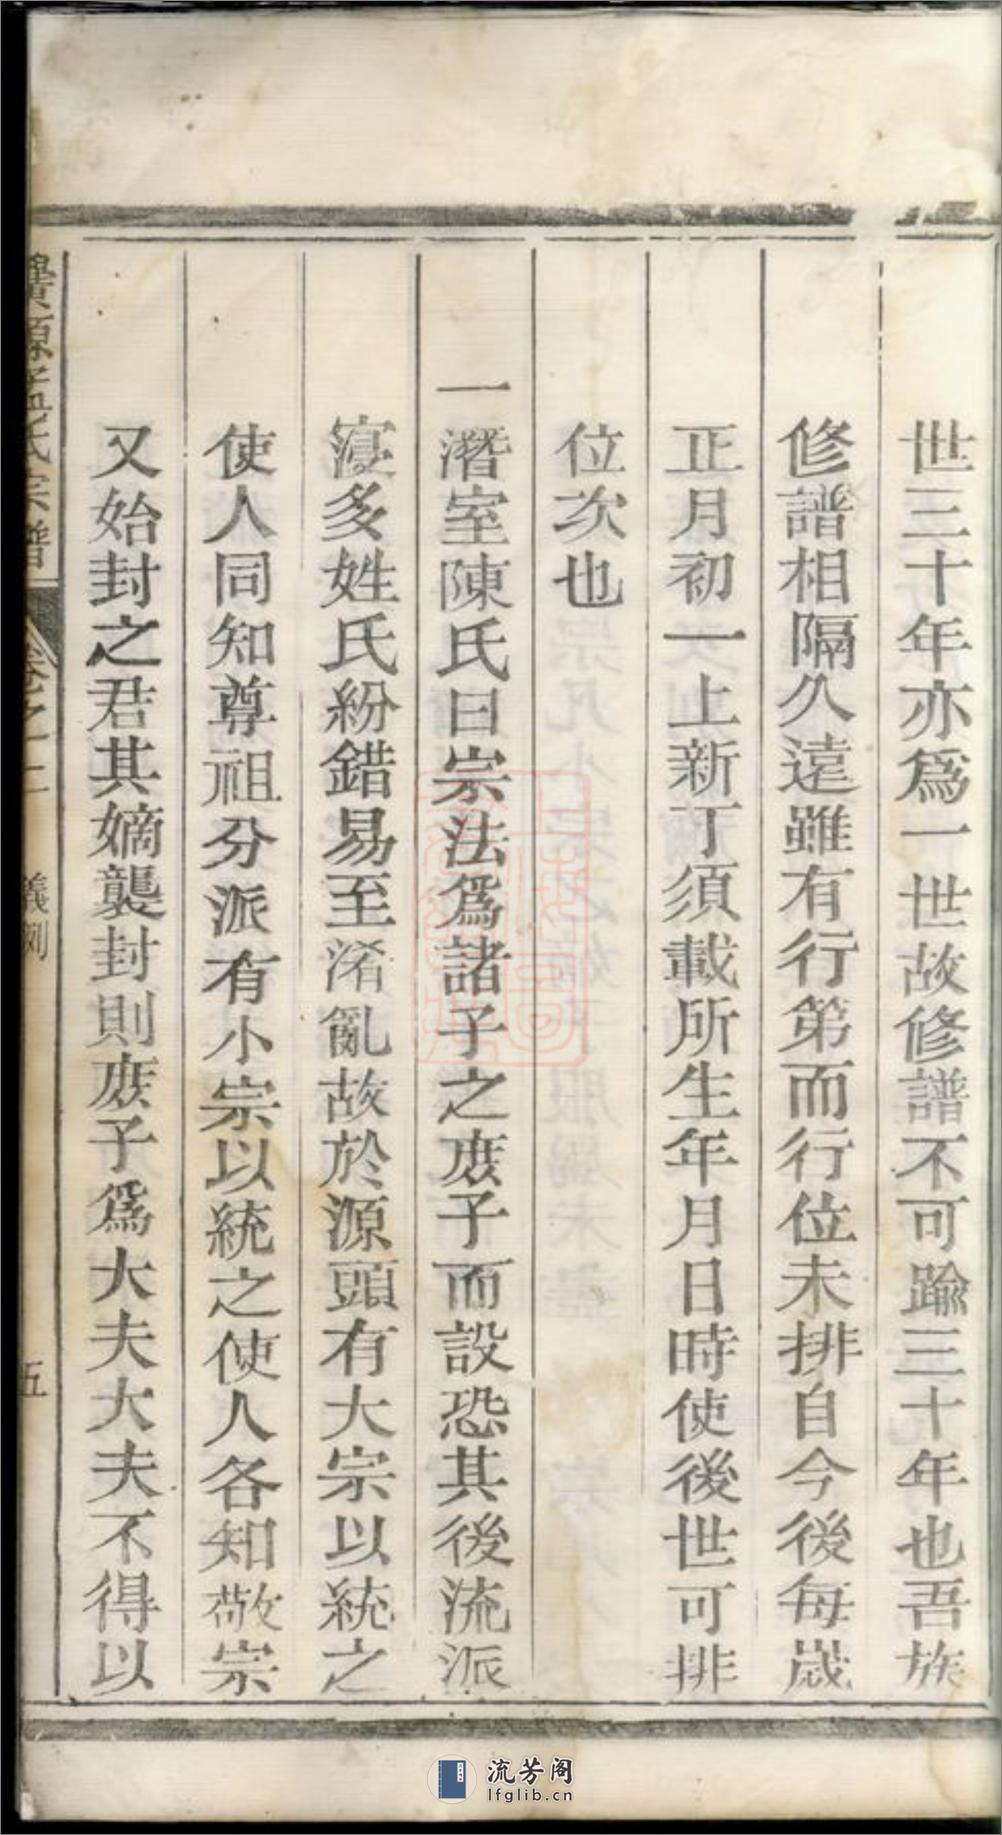 世三十年亦爲一世故修譜不可踰三十年也吾族
修譜相隔久遠雖有行第而行位未排自今後每歲
正月初一上新丁須載所生年月日時使後世可排
位次也
一潛室陳氏曰宗法爲諸子之庶子而設恐其後流派
寖多姓氏紛錯易至淆亂故於源頭有大宗以統之
使人同知尊祖分派有小宗以統之使人各知敬宗
又始封之君其嫡襲封則庶子爲大夫大夫不得以
源孟氏宗譜 卷之一 義例 五
流芳阁
lfglib.cn